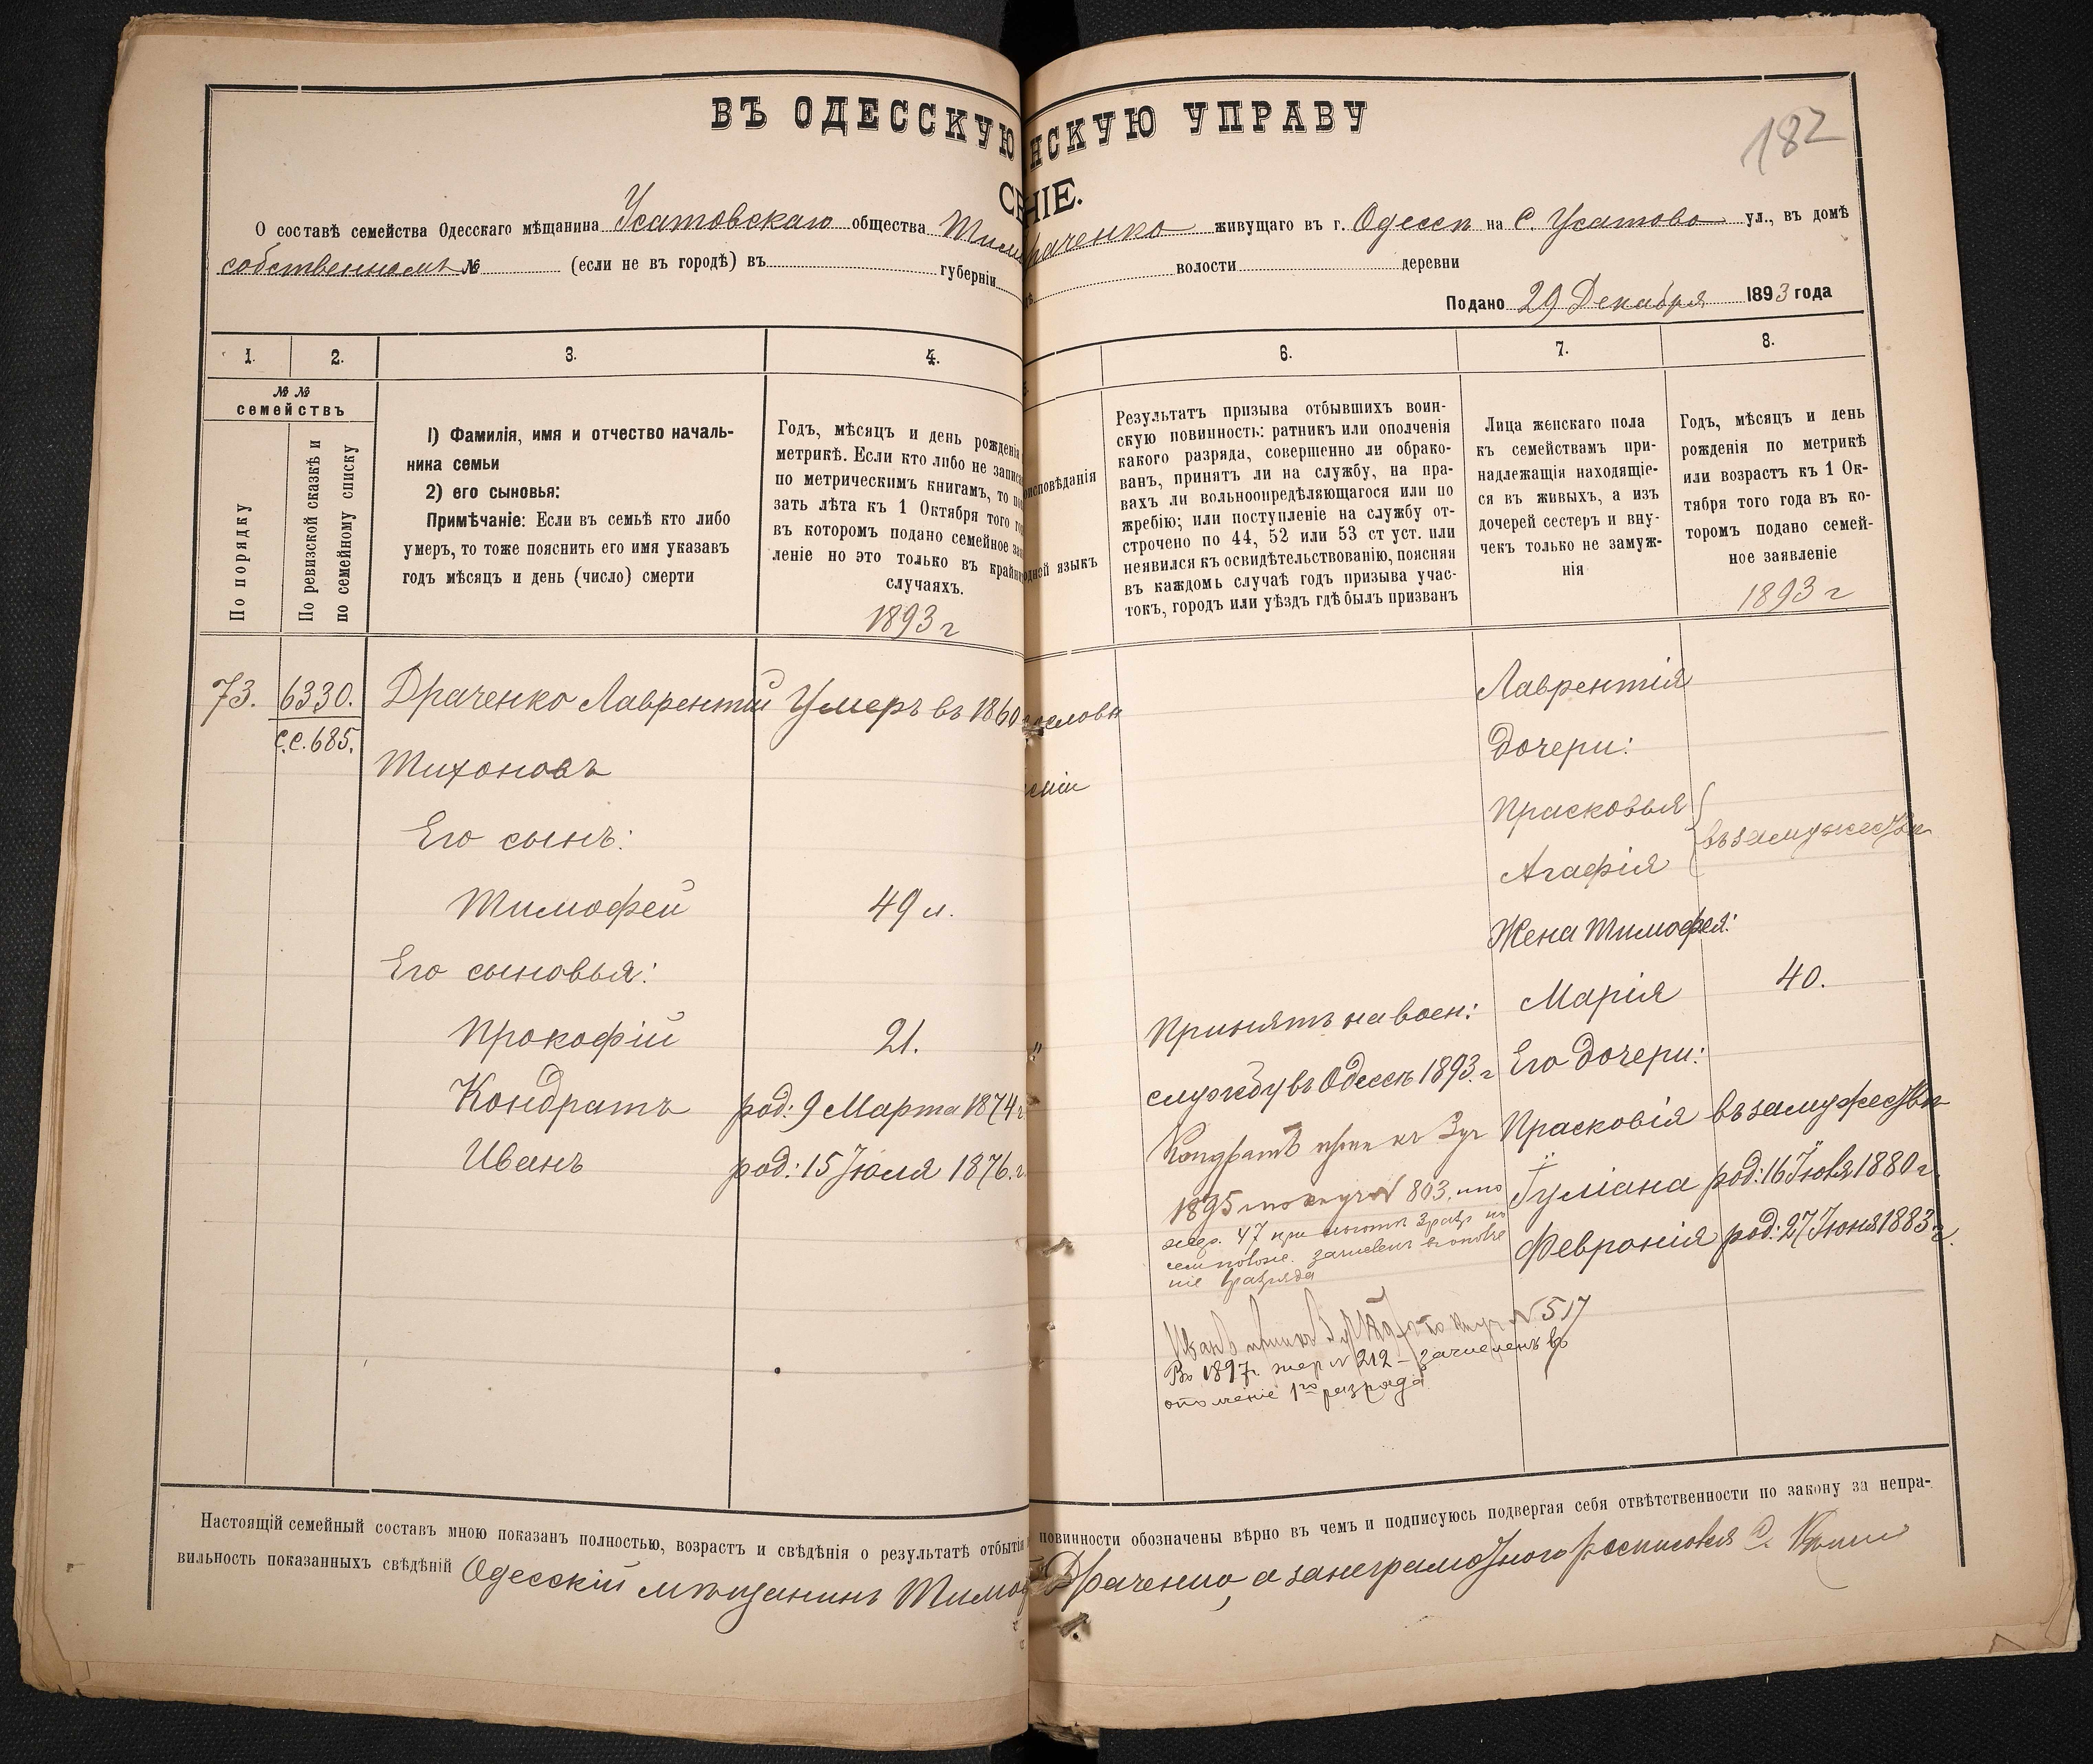 182
ВЪ ОДЕССКУЮ НСКУЮ УПРАВУ
НІЕ.
О составѣ семейства Одесскаго мѣщанина Усатовскаго общества Тим раченко живущаго въ г. Одессѣ на С. Усатово ул., въ домѣ
собственномъ № (если не въ городѣ) въ губерніи волости деревни
Подано 29 Декабря 1893 года
1. 2. 3. 4. 6. 7. 8.
№ №
семействъ
По порядку
По ревизской сказкѣ и
по семейному списку
1) Фамилія, имя и отчество началь-
ника семьи
2) его сыновья:
Примѣчаніе: Если въ семьѣ кто либо
умеръ, то тоже пояснить его имя указавъ
годъ мѣсяцъ и день (число) смерти
Годъ, мѣсяцъ и день рожденія
метрикѣ. Если кто либо не записа
по метрическимъ книгамъ, то по
зать лѣта къ 1 Октября того го
въ которомъ подано семейное зая
леніе но это только въ крайни
случаяхъ.
1893 г
исповѣданія
одной языкъ
Результатъ призыва отбывшихъ воин-
скую повинность: ратникъ или ополченія
какого разряда, совершенно ли обрако-
ванъ, принятъ ли на службу, на пра-
вахъ ли вольноопредѣляющагося или по
жребію; или поступленіе на службу от-
строчено по 44, 52 или 53 ст уст. или
неявился къ освидѣтельствованію, поясняя
въ каждомъ случаѣ годъ призыва учас-
токъ, городъ или уѣздъ гдѣ былъ призванъ
Лица женскаго пола
къ семействамъ при-
надлежащія находящіе-
ся въ живыхъ, а изъ
дочерей сестеръ и вну-
чекъ только не замуж-
нія
Годъ, мѣсяцъ и день
рожденія по метрикѣ
или возрастъ къ 1 Ок-
тября того года въ ко-
торомъ подано семей-
ное заявленіе
1893 г
73. 6330. Драченко Лаврентій Умеръ въ 1860
С.С. 685.
Тихоновъ
Его сынъ:
Тимофей 49 л.
Его сыновья:
Прокофій 21.
Кондратъ род: 9 Марта 1874 г
Иванъ род: 15 Іюля 1876. г
Принятъ на воен:
службу въ Одессѣ 1893. г
Кондратъ
1895 № 803.
47
Иванъ № 517
Въ 1897г. жер № 212 – зачисленъ въ
ополченіе 1го разряда
Лаврентія
дочери:
Прасковья
въ замужествѣ
Агафія
Жена Тимофея:
Марія 40.
Его дочери:
Прасковія въ замужествѣ
Іуліана род: 16 Іюля 1880 г.
Февронія род: 27 Іюня 1883 г.
Настоящій семейный составъ мною показанъ полностью, возрастъ и свѣдѣнія о результатѣ отбытія повинности обозначены вѣрно въ чемъ и подписуюсь подвергая себя отвѣтственности по закону за непра-
вильность показанныхъ свѣдѣній Одесскій мѣщанинъ Тимоф Драченко, а за неграмотного росписовся С.